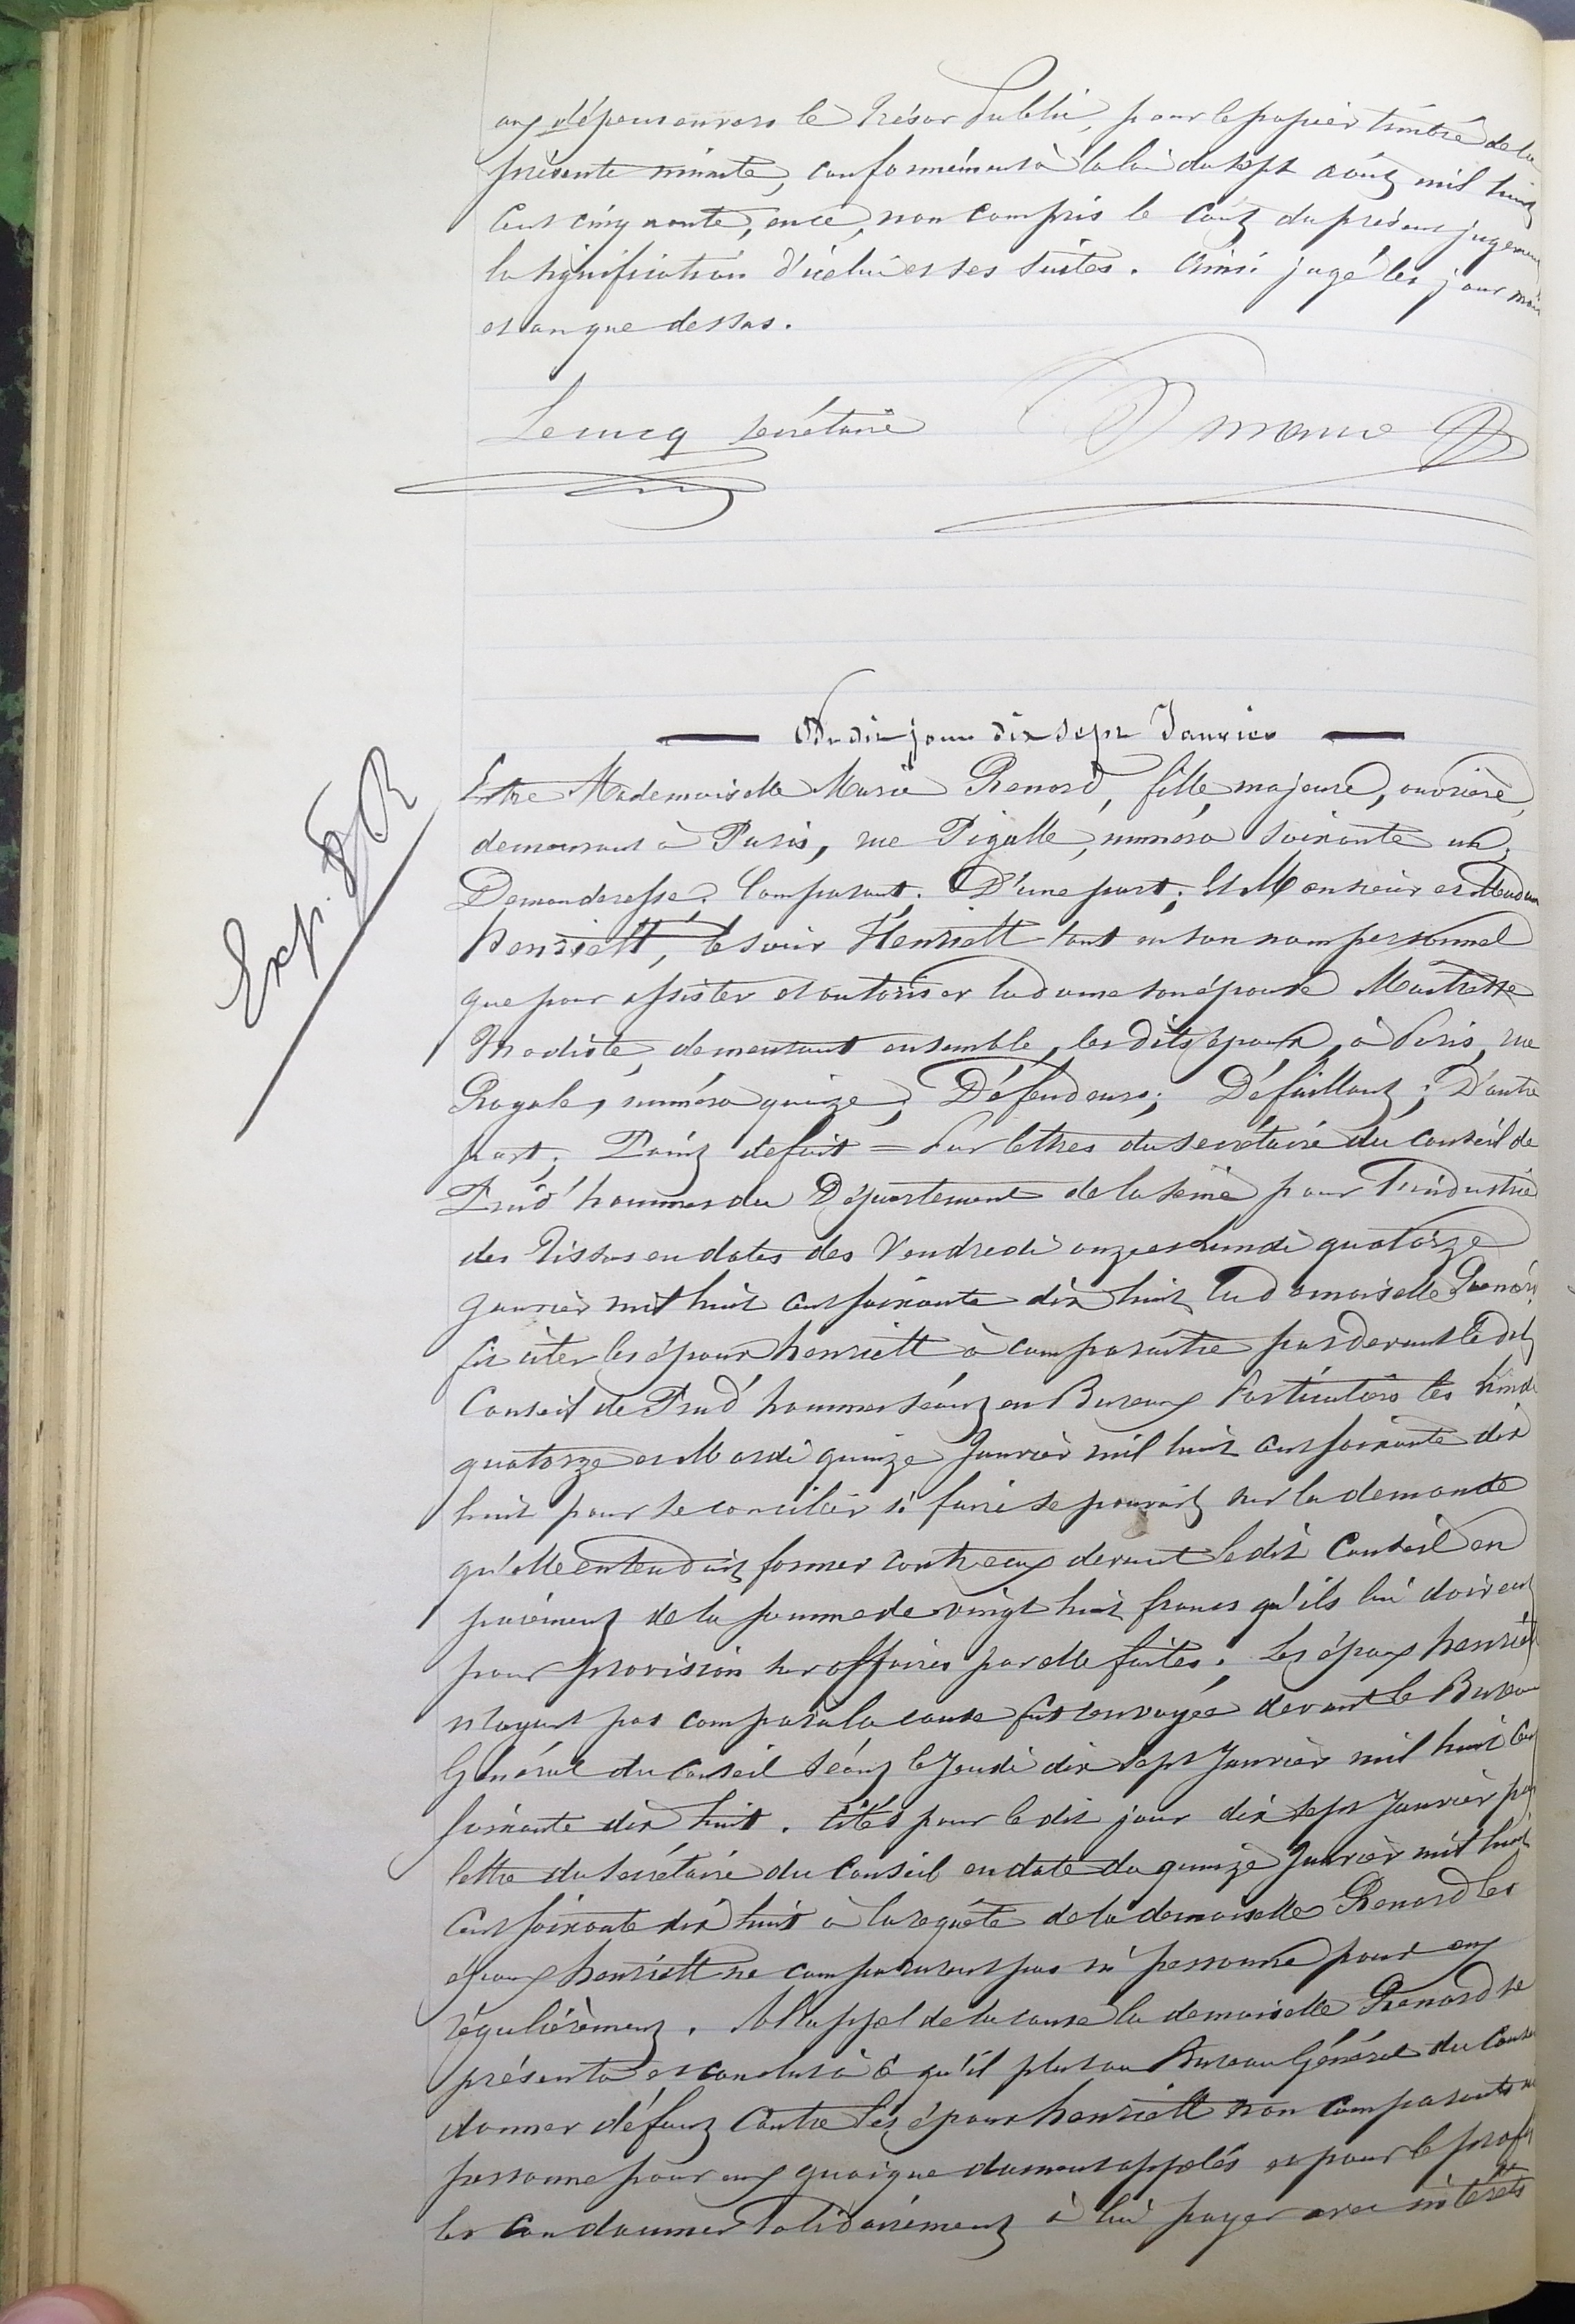 aux dépens envers le Trésor Public, pour le papier timbré de la
présente minute, conformément à la loi du sept août mil huit
cent cinquante, ence, non compris le coût du présent jugement
la signification d'icelui et ses suites. Ainsi jugé les jour mois
et an que dessus.
Lecucq secrétaire
Du dit jour dix sept Janvier
Exp. R
Entre Mademoiselle Marie Renard, fille majeure, ouvrière,
demeurant à Paris, rue Pigalle, numéro soixante un;
Demanderesse; Comparant; D'une part; Et Monsieur et Madame
henriett, le sieur Henriett tant en son nom personnel
que pour assister et autoriser la dame son épouse Maitresse
Modiste, demeurant ensemble, les dits époux, à Paris, rue
Royale, numéro quinze; Défendeurs; Défaillant; D'autre
part; Point de fait = Par lettres du secrétaire du Conseil de
Prud'hommes du Département de la Seine pour l'industrie
des Tissus en dates des Vendredi onze et lundi quatorze
Janvier mil huit cent soixante dix huit la demoiselle Renard
fit citer les époux henriett à comparaître par devant le dit
Conseil de Prud'hommes séant en Bureaux Particuliers les lundi
quatorze et Mardi quinze Janvier mil huit cent soixante dix
huit pour se concilier si faire se pouvait sur la demande
qu'elle entendait former contre eux devant le dit Conseil en
paiement de la somme de vingt huit francs qu'ils lui doivent
pour provision sur affaires par elle faites. Les époux henriett
n'ayant pas comparu la cause fut renvoyée devant le Bureau
Général du Conseil séant le Jeudi dix sept Janvier mil huit cent
soixante dix huit. Cités pour le dit jour dix sept Janvier par
lettre du secrétaire du Conseil en date du quinze Janvier mil huit
cent soixante dix huit à la requête de la demoiselle Renard les
époux henriett ne comparurent pas ni personne pour eux
régulièrement. A l'appel de la cause la demoiselle Renard se
présenta et conclut à ce qu'il plut au Bureau Général du Conseil
donner défaut contre les époux henriett non comparants ni
personne pour eux quoique dument appelés et pour le profit
les condamner solidairement à lui payer avec intérêts